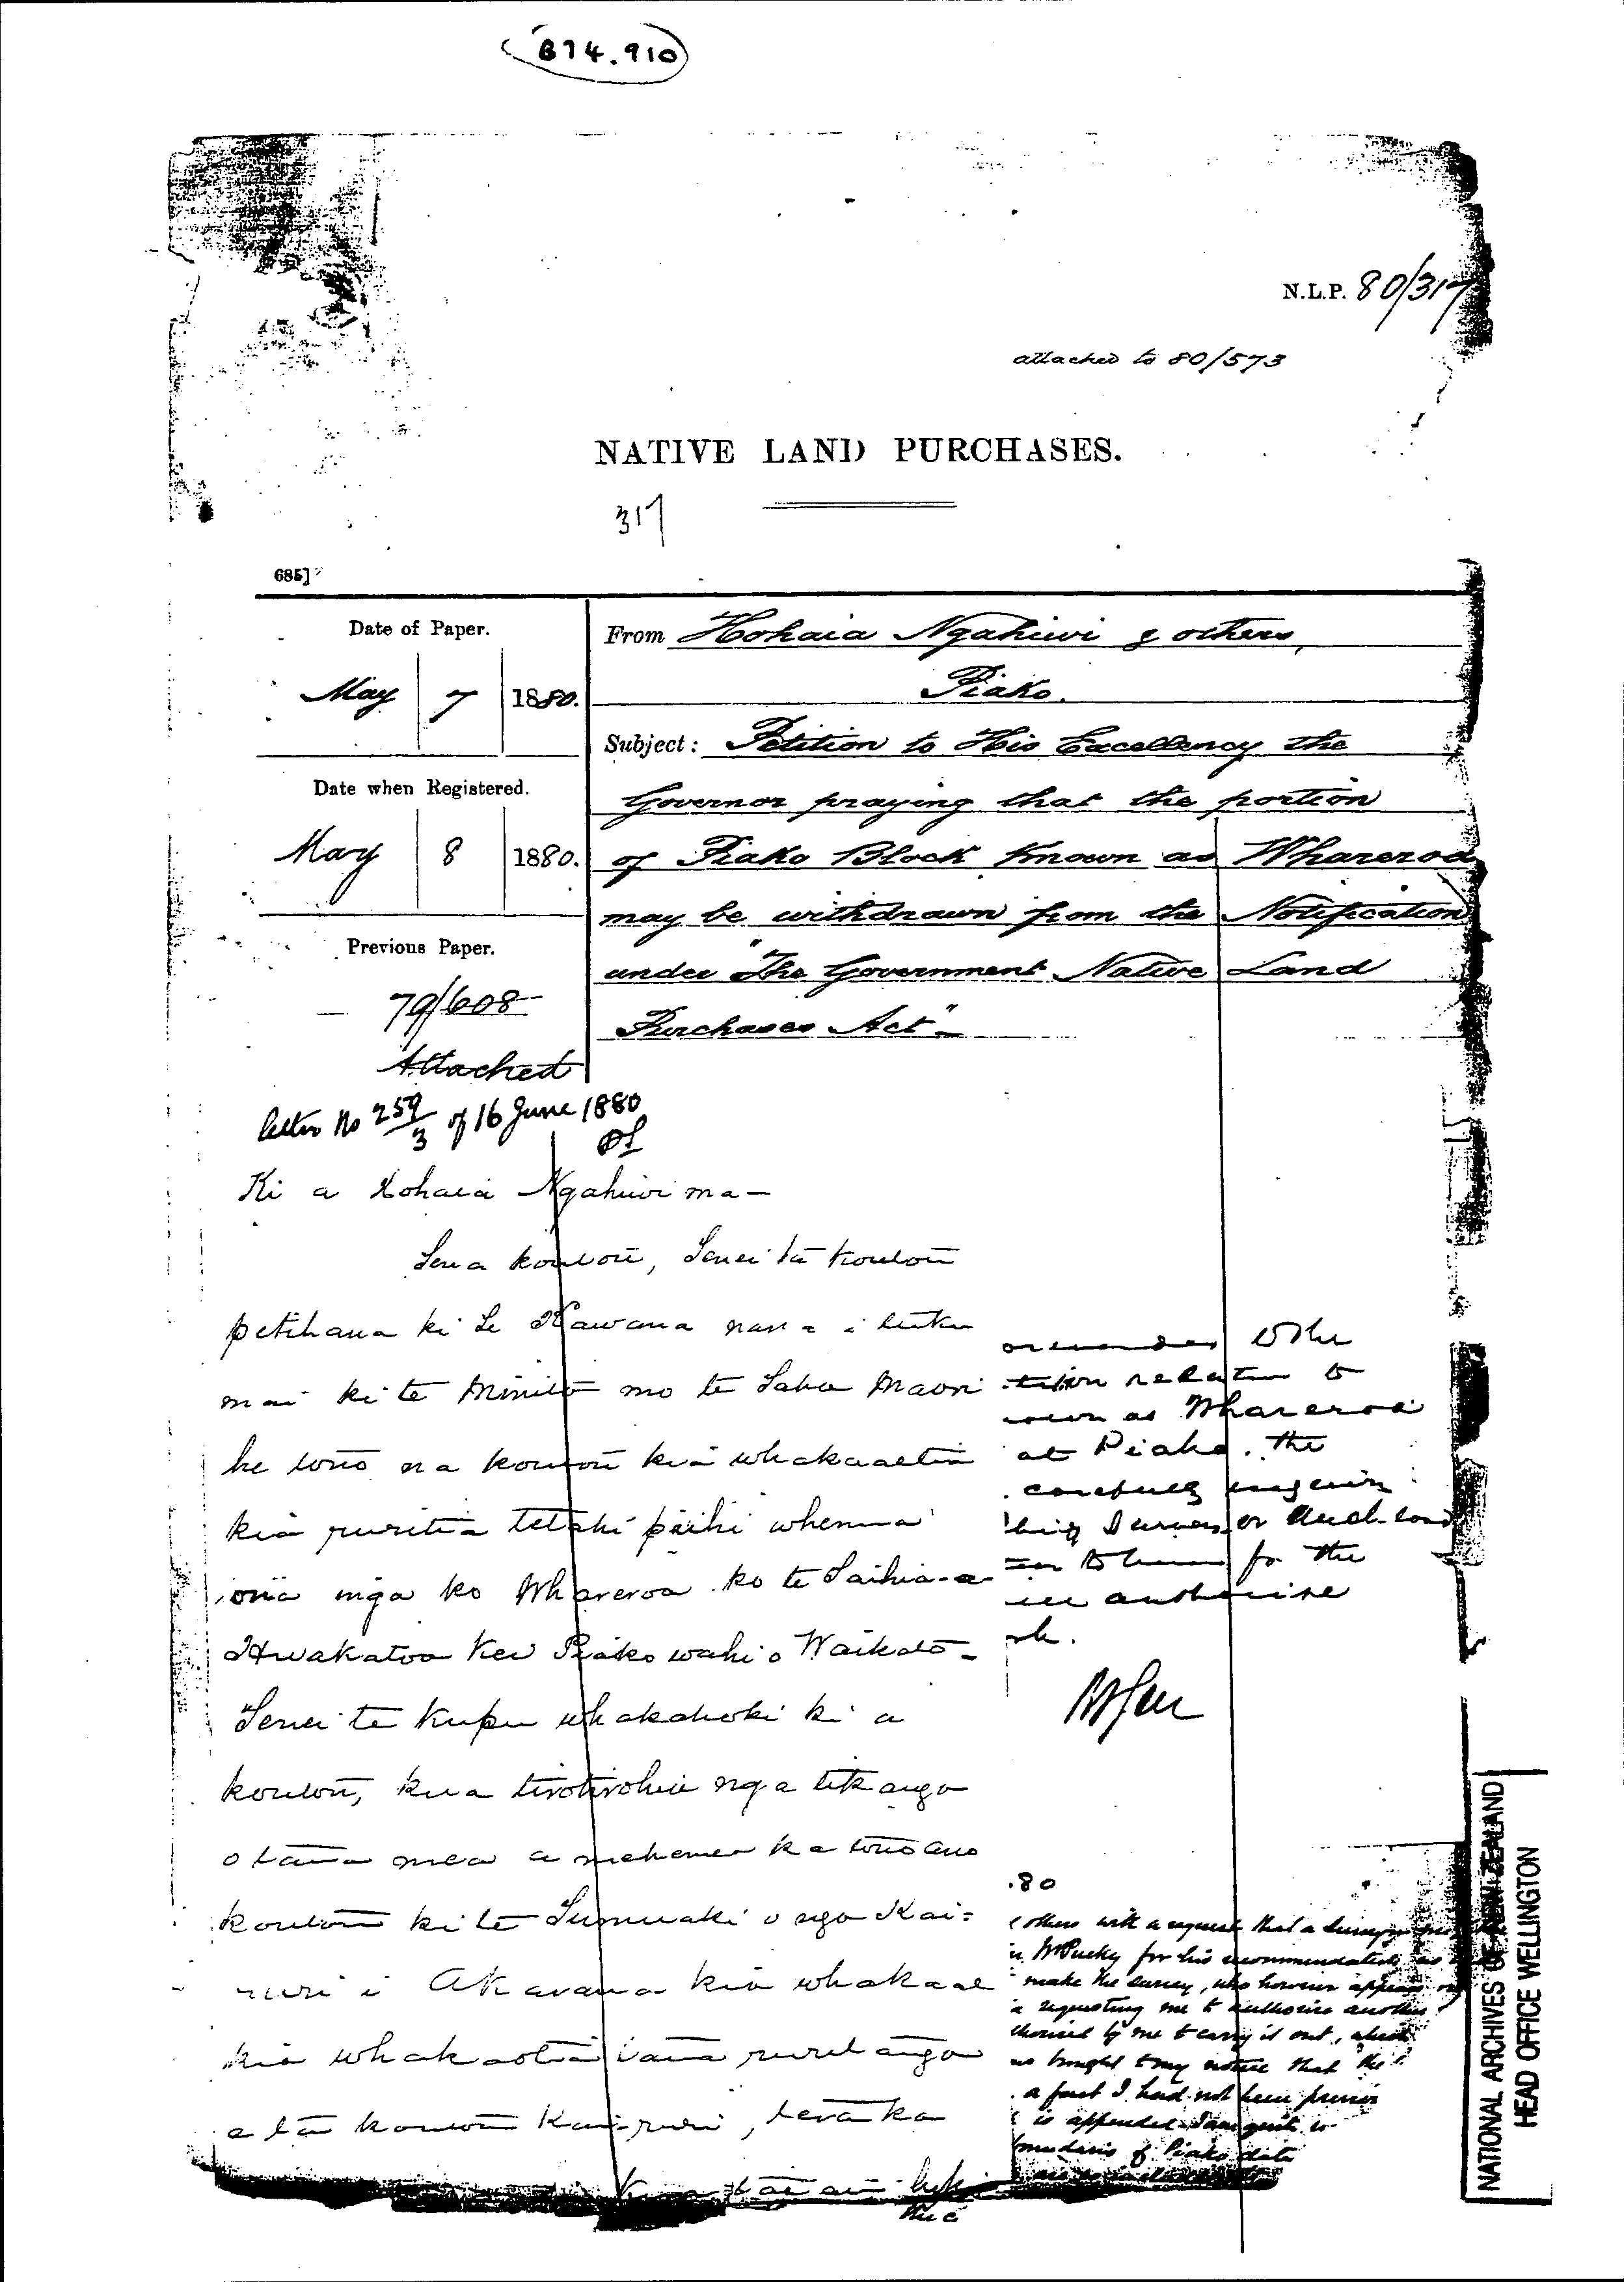 B74.910
N.L.P. 80/317
attached to 80/573
NATIVE LAND PURCHASES.
317
685]
Date of Paper.
May 7 1880.
Date when Registered.
May 8 1880.
Previous Paper.
79/608
Attached
From Hohaia Ngahiwi & others,
Piako.
Subject: Petition to His Excellency the
Governor praying that the portion
of Piako Block known as Whareroa
may be withdrawn from the Notification
under "The Government Native Land
Purchases Act"
letter No 259/3 of 16 June 1880
Ki a Hohaia Ngahiwi ma—
Tena koutou, Tenei ta koutou
petihana ki te Kawana nana i tuku
mai ki te Minita mo te Taha Maori
he tono na koutou kia whakaaetia
kia ruritia tetahi paihi whenua
ona inga ko Whareroa ko te Taihia-a-
kei Piako wahi o Waikato-
Tenei te kupu whakahoki ki a
koutou, kua tirotirohia nga tikanga
o taua mea a mehemea ka tono ano
koutou ki te Tumuaki o nga Kai=
ruri i Akarana kia whakaae
kia whakaotia taua ruritanga
e ta koutou Kai-ruri, tera ka
to the
relative to
as Whareroa
at Piako. the
carefully
Surveyor Auckland
to him for the
authorise
.80
others with a request that a
McPucky for his recommendation
make the survey, who however appears
requesting me to authorise another
by me to carry it out,
brought to my notice that the
a fact I had not been
is appended. I am quite
of Piako
NATIONAL ARCHIVES OF NEW ZEALAND
HEAD OFFICE WELLINGTON